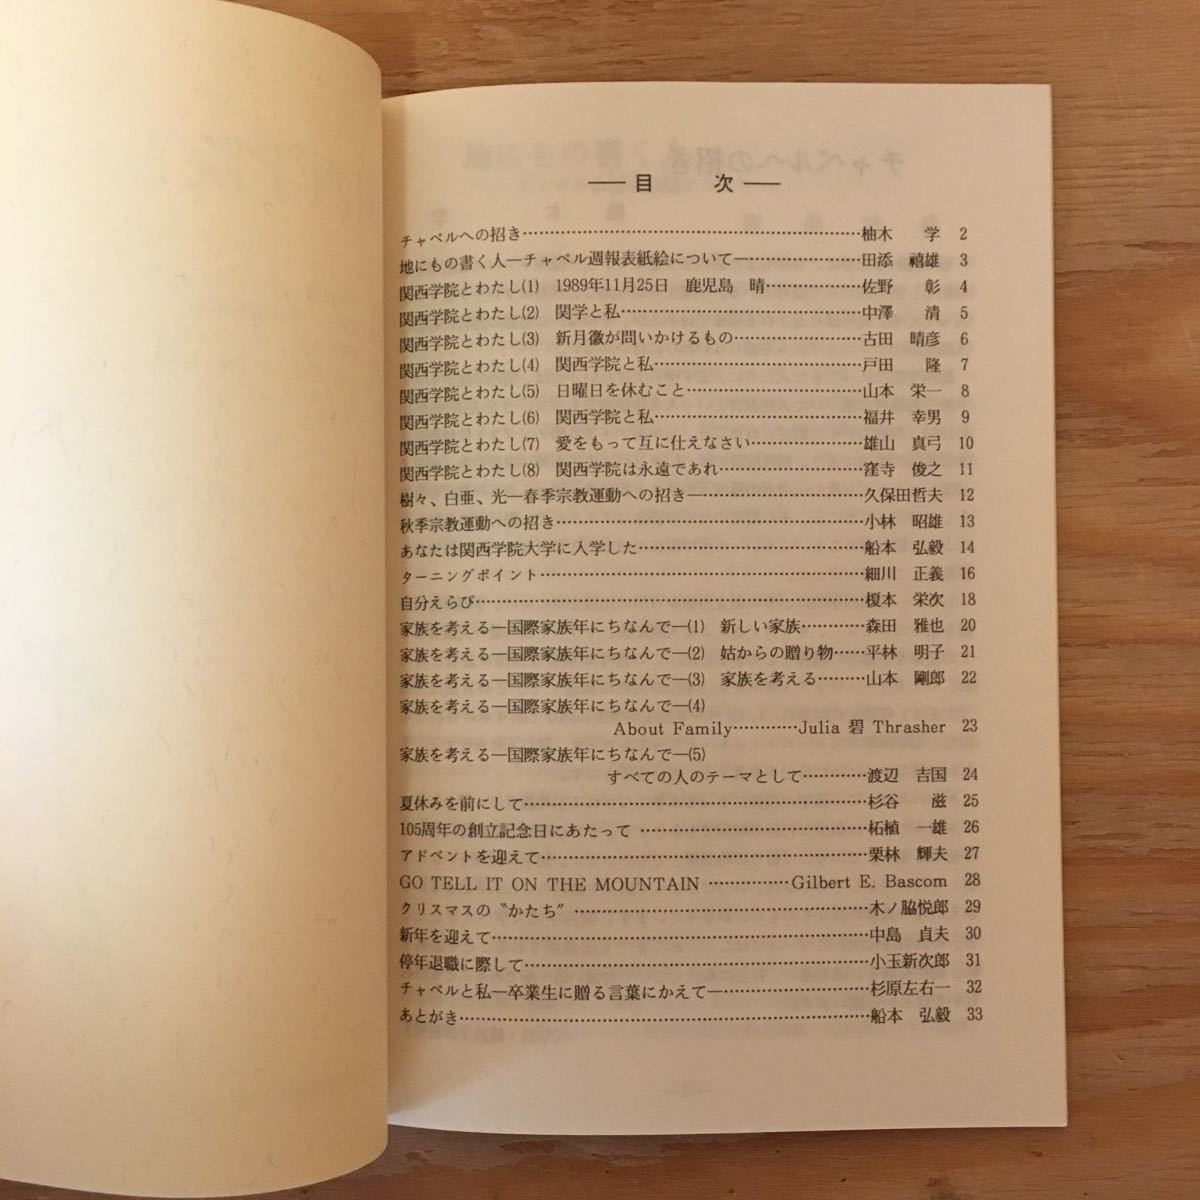 ―― 目 次 ――
チャペルへの招き……………………………………柚木 学 2
地にもの書く人―チャペル週報表紙絵について―…………田添 禧雄 3
関西学院とわたし(1) 1989年11月25日 鹿児島 晴………………佐野 彰 4
関西学院とわたし(2) 関学と私……………………………中澤 清 5
関西学院とわたし(3) 新月徽が問いかけるもの……………古田 晴彦 6
関西学院とわたし(4) 関西学院と私………………………戸田 隆 7
関西学院とわたし(5) 日曜日を休むこと…………………山本 栄一 8
関西学院とわたし(6) 関西学院と私………………………福井 幸男 9
関西学院とわたし(7) 愛をもって互に仕えなさい……………雄山 真弓 10
関西学院とわたし(8) 関西学院は永遠であれ………………窪寺 俊之 11
樹々、白亜、光―春季宗教運動への招き―…………………久保田哲夫 12
秋季宗教運動への招き……………………………………小林 昭雄 13
あなたは関西学院大学に入学した…………………………船本 弘毅 14
ターニングポイント………………………………………細川 正義 16
自分えらび………………………………………………榎本 栄次 18
家族を考える―国際家族年にちなんで―(1) 新しい家族…………森田 雅也 20
家族を考える―国際家族年にちなんで―(2) 姑からの贈り物……平林 明子 21
家族を考える―国際家族年にちなんで―(3) 家族を考える………山本 剛郎 22
家族を考える―国際家族年にちなんで―(4)
About Family…………Julia 碧 Thrasher 23
家族を考える―国際家族年にちなんで―(5)
すべての人のテーマとして…………渡辺 吉国 24
夏休みを前にして…………………………………………杉谷 滋 25
105周年の創立記念日にあたって …………………………柘植 一雄 26
アドベントを迎えて………………………………………栗林 輝夫 27
GO TELL IT ON THE MOUNTAIN ……………Gilbert E. Bascom 28
クリスマスの〝かたち〟 …………………………………木ノ脇悦郎 29
新年を迎えて……………………………………………中島 貞夫 30
停年退職に際して…………………………………………小玉新次郎 31
チャペルと私―卒業生に贈る言葉にかえて―………………杉原左右一 32
あとがき…………………………………………………船本 弘毅 33